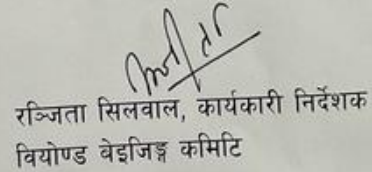 रञ्जिता सिलवाल, कार्यकारी निर्देशक
वियोण्ड बेइजिङ्ग कमिटि